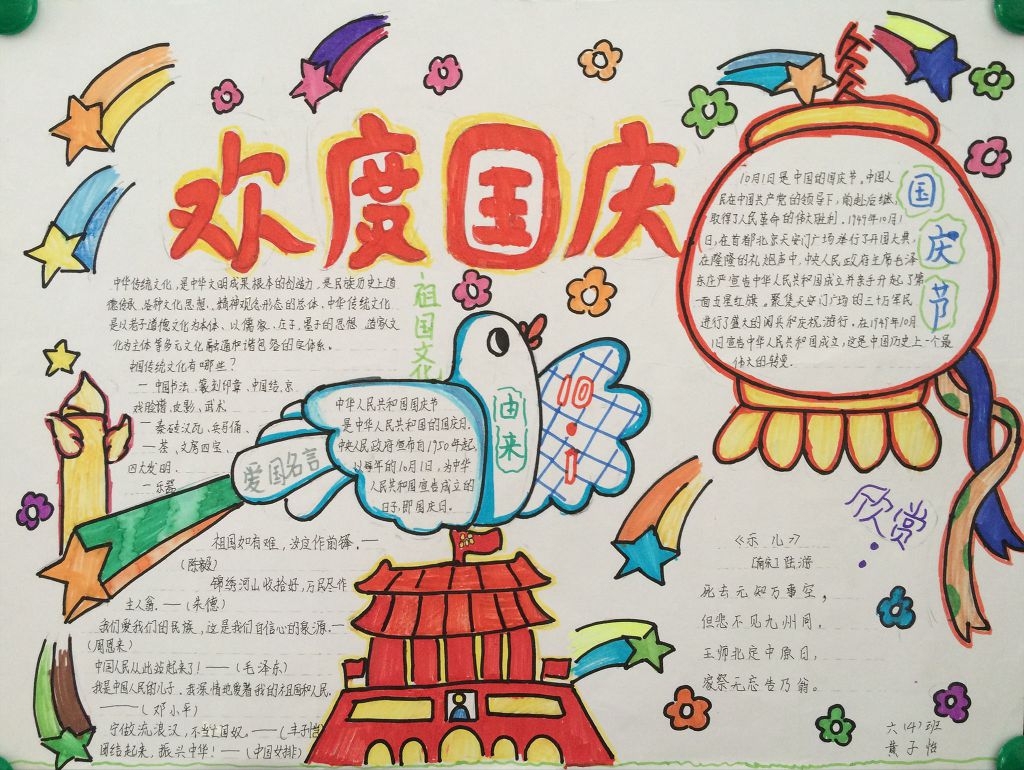 欢度国庆
中华传统文化,是中华文明成果根本的创造力,是民族历史上道
德传承、各种文化思想、精神观念形态的总体,中华传统文化
是以老子道德文化为本体、以儒家、庄子、墨子的思想、道家文
化为主体等多元文化融通和谐包容的实体系。
中国传统文化有哪些?
一 中国书法、篆刻印章、中国结、京
戏脸谱、皮影、武术
一 秦砖汉瓦、兵马俑、
一 茶、文房四宝、
四大发明.
一乐器
祖国文化
中华人民共和国国庆节
是中华人民共和国的国庆日.
中央人民政府宣布自1950年起,
以每年的10月1日,为中华
人民共和国宣告成立的
日子,即国庆日.
由来
10.1
10月1日是中国的国庆节。中国人
民在中国共产党的领导下,前赴后继,
取得了人民革命的伟大胜利.1949年10月1
日,在首都北京天安门广场举行了开国大典,
在隆隆的礼炮声中,中央人民政府主席毛泽
东庄严宣告中华人民共和国成立并亲手升起了第
一面五星红旗。聚集天安门广场的三十万军民
进行了盛大的阅兵和庆祝游行.在1949年10月
1日宣告中华人民共和国成立,这是中国历史上一个最
伟大的转变.
国庆节
爱国名言
祖国如有难,汝应作前锋.一
(陈毅)
锦绣河山收拾好,万民尽作
主人翁.——(朱德)
我们爱我们的民族,这是我们自信心的泉源.一
(周恩来)
中国人民从此站起来了!——(毛泽东)
我是中国人民的儿子.我深情地爱着我的祖国和人民.
———(邓小平)
宁做流浪汉,不当亡国奴.——(丰子恺)
团结起来,振兴中华!——(中国女排)
欣赏
《示儿》
[南宋]陆游
死去元知万事空,
但悲不见九州同.
王师北定中原日,
家祭无忘告乃翁。
六(4)班
黄子怡